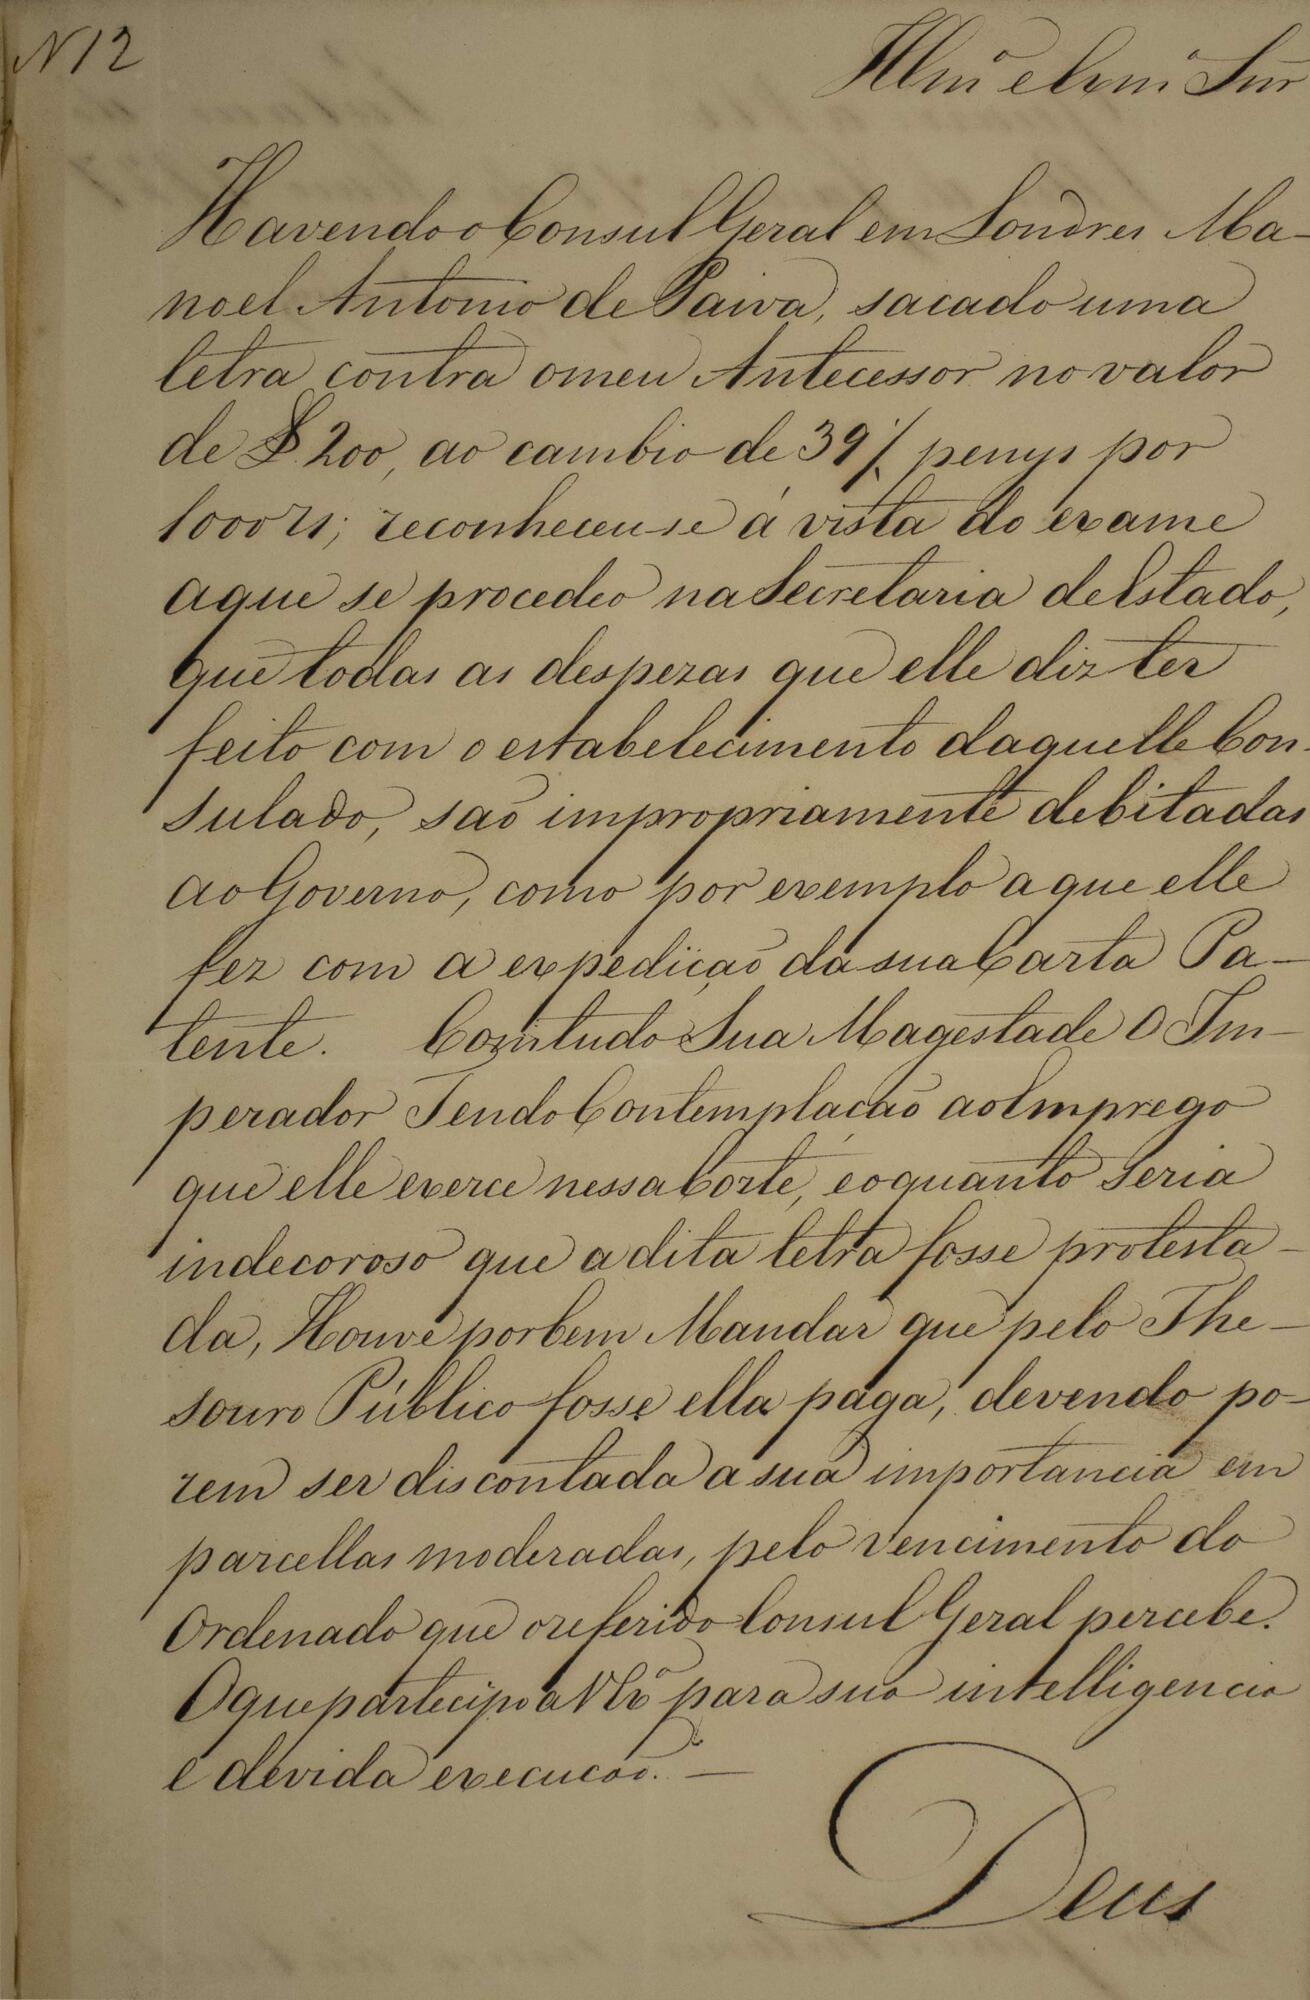 N 12
Illmo e Exmo Snr
Havendo o Consul Geral em Londres Ma-
noel Antonio de Paiva, sacado uma
letra contra o meu Antecessor no valor
de £ 200, ao cambio de 39 penys por
1000 rs; reconheceu-se á vista do exame
a que se procedeo na Secretaria de Estado,
que todas as despezas que elle diz ter
feito com o estabelecimento daquelle Con-
sulado, saõ impropriamente debitadas
ao Governo, como por exemplo a que elle
fez com a expediçaõ da sua Carta Pa-
tente. Comtudo Sua Magestade O Im-
perador Tendo Contemplaçaõ ao Emprego
que elle exerce nessa Corte, e o quanto seria
indecoroso que a dita letra fosse protesta-
da, Houve por bem Mandar que pelo The-
souro Público fosse ella paga, devendo po-
rem ser discontada a sua importancia em
parcellas moderadas, pelo vencimento do
Ordenado que o referido Consul Geral percebe.
O que partecipo a V Exª para sua intelligencia
e devida execucaõ. —
Deus